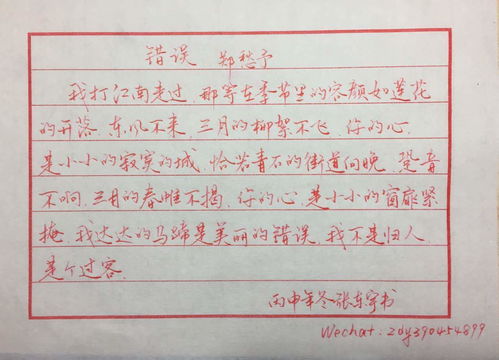 错误 郑愁予
我打江南走过,那等在季节里的容颜如莲花
的开落,东风不来,三月的柳絮不飞,你的心,
是小小的寂寞的城,恰若青石的街道向晚,跫音
不响,三月的春帷不揭,你的心,是小小的窗扉紧
掩,我达达的马蹄是美丽的错误,我不是归人,
是个过客,
丙申年冬张东宇书
Wechat:zdy390454899